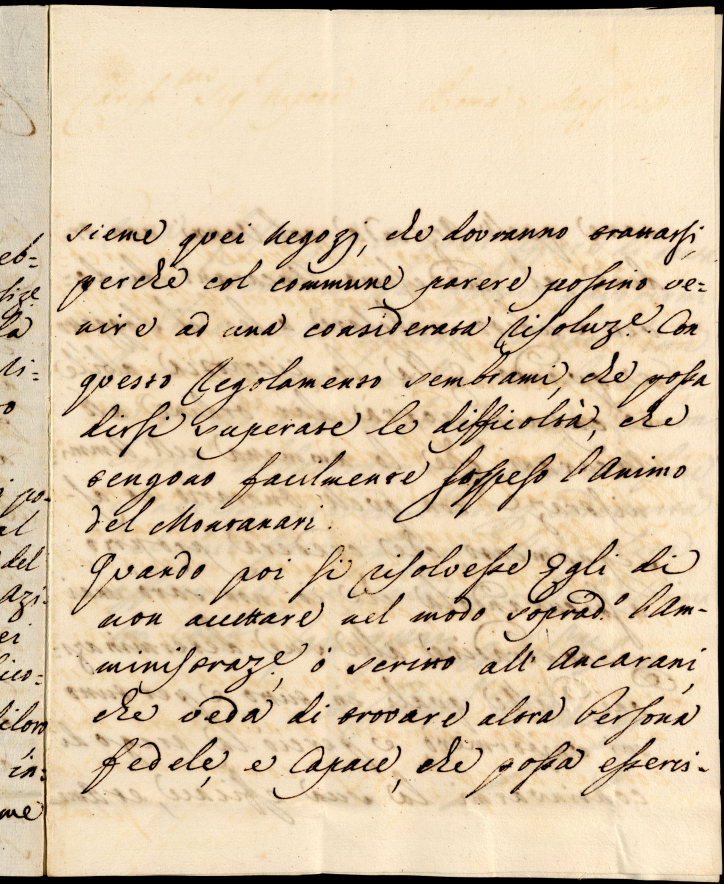 sieme quei negozj, che dovranno trattarsi,
perche col commune parere possino ve=
nire ad una considerata risoluz.e Con
questo Regolamento sembrami, che possa
dirsi superate le difficoltà, che
tengono facilmente sospeso l'Animo
del Montanari.
Quando poi si risolvesse Egli di
non accettare nel modo soprad.o l'Am-
ministraz.e, ó scritto all' Ancarani,
che veda di trovare altra Persona
fedele, e capace, che possa esserci-
eb=
lize
la
ti=
o
i po-
al
del
azi-
ei
ico=
di loro
in=
me